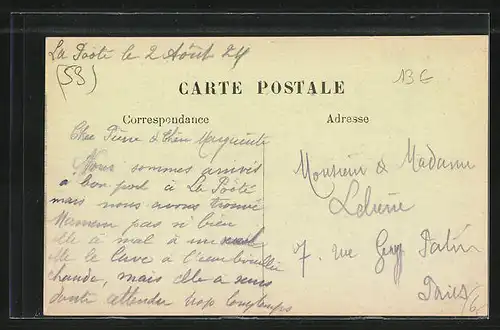 La Poôté le 2 Août 24
(53)
13E
CARTE POSTALE
Correspondance
Adresse
Cher Pierre & Chère Marguerite
Nous sommes arrivés
à bon port à La Poôté
mais nous avons trouvé
Maman pas si bien
elle a mal à un
elle le lave à l'eau bouillie
chaude, mais elle a sans
doute attendu trop longtemps
Monsieur & Madame
7. rue Guy Patin
Paris